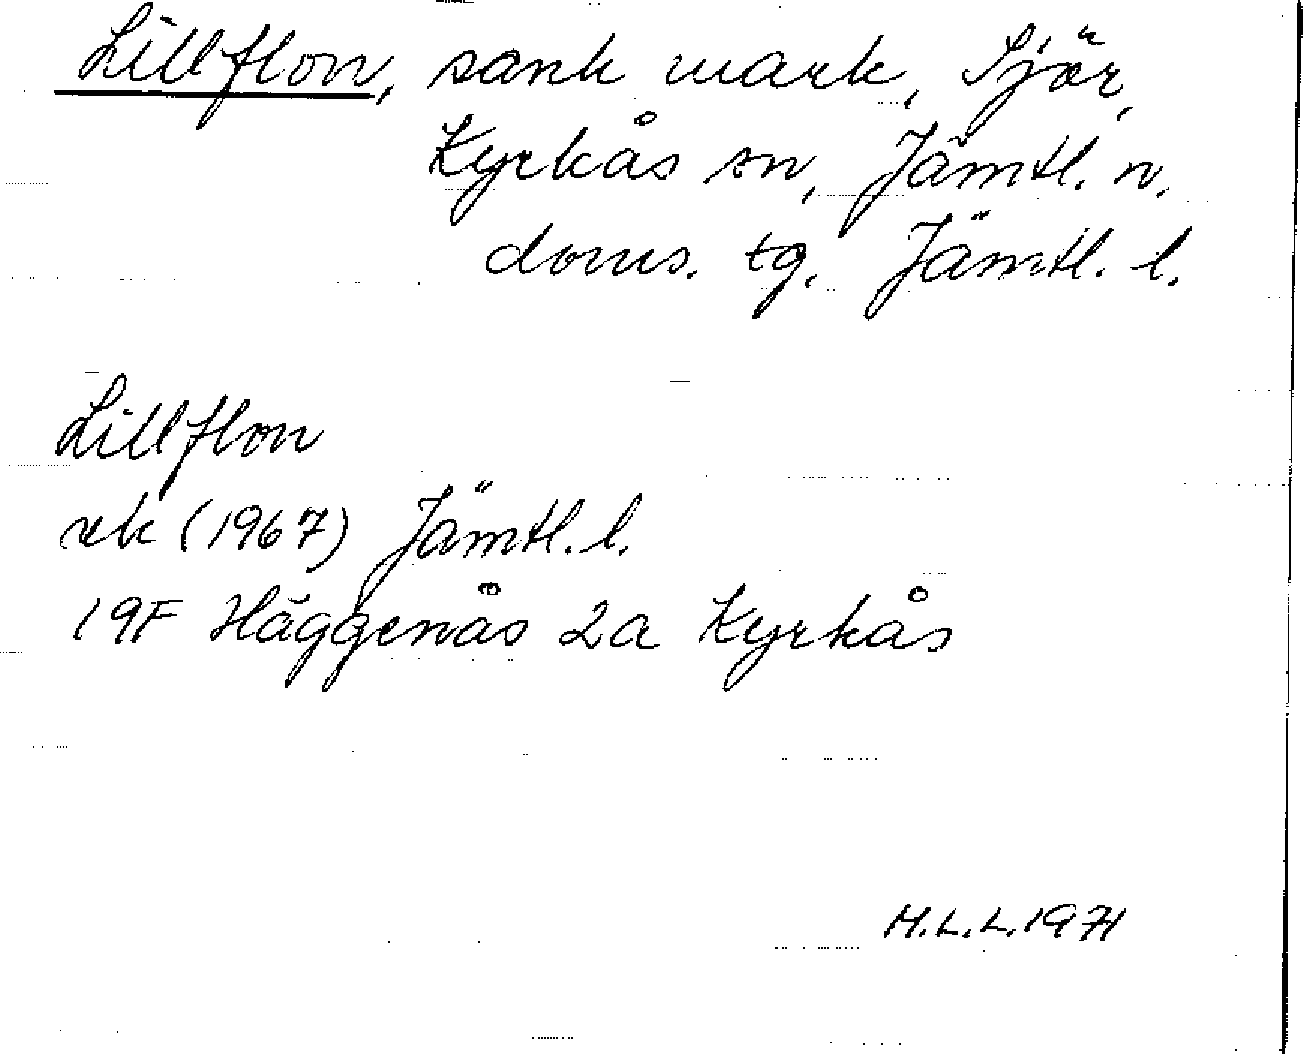 Lillflon, sank mark, Sjör,
Kyrkås sn, Jämtl. n.
doms. tg. Jämtl. l.
Lillflon
rek (1967) Jämtl. l.
19F Häggenås 2a Kyrkås
M.L.L. 1971